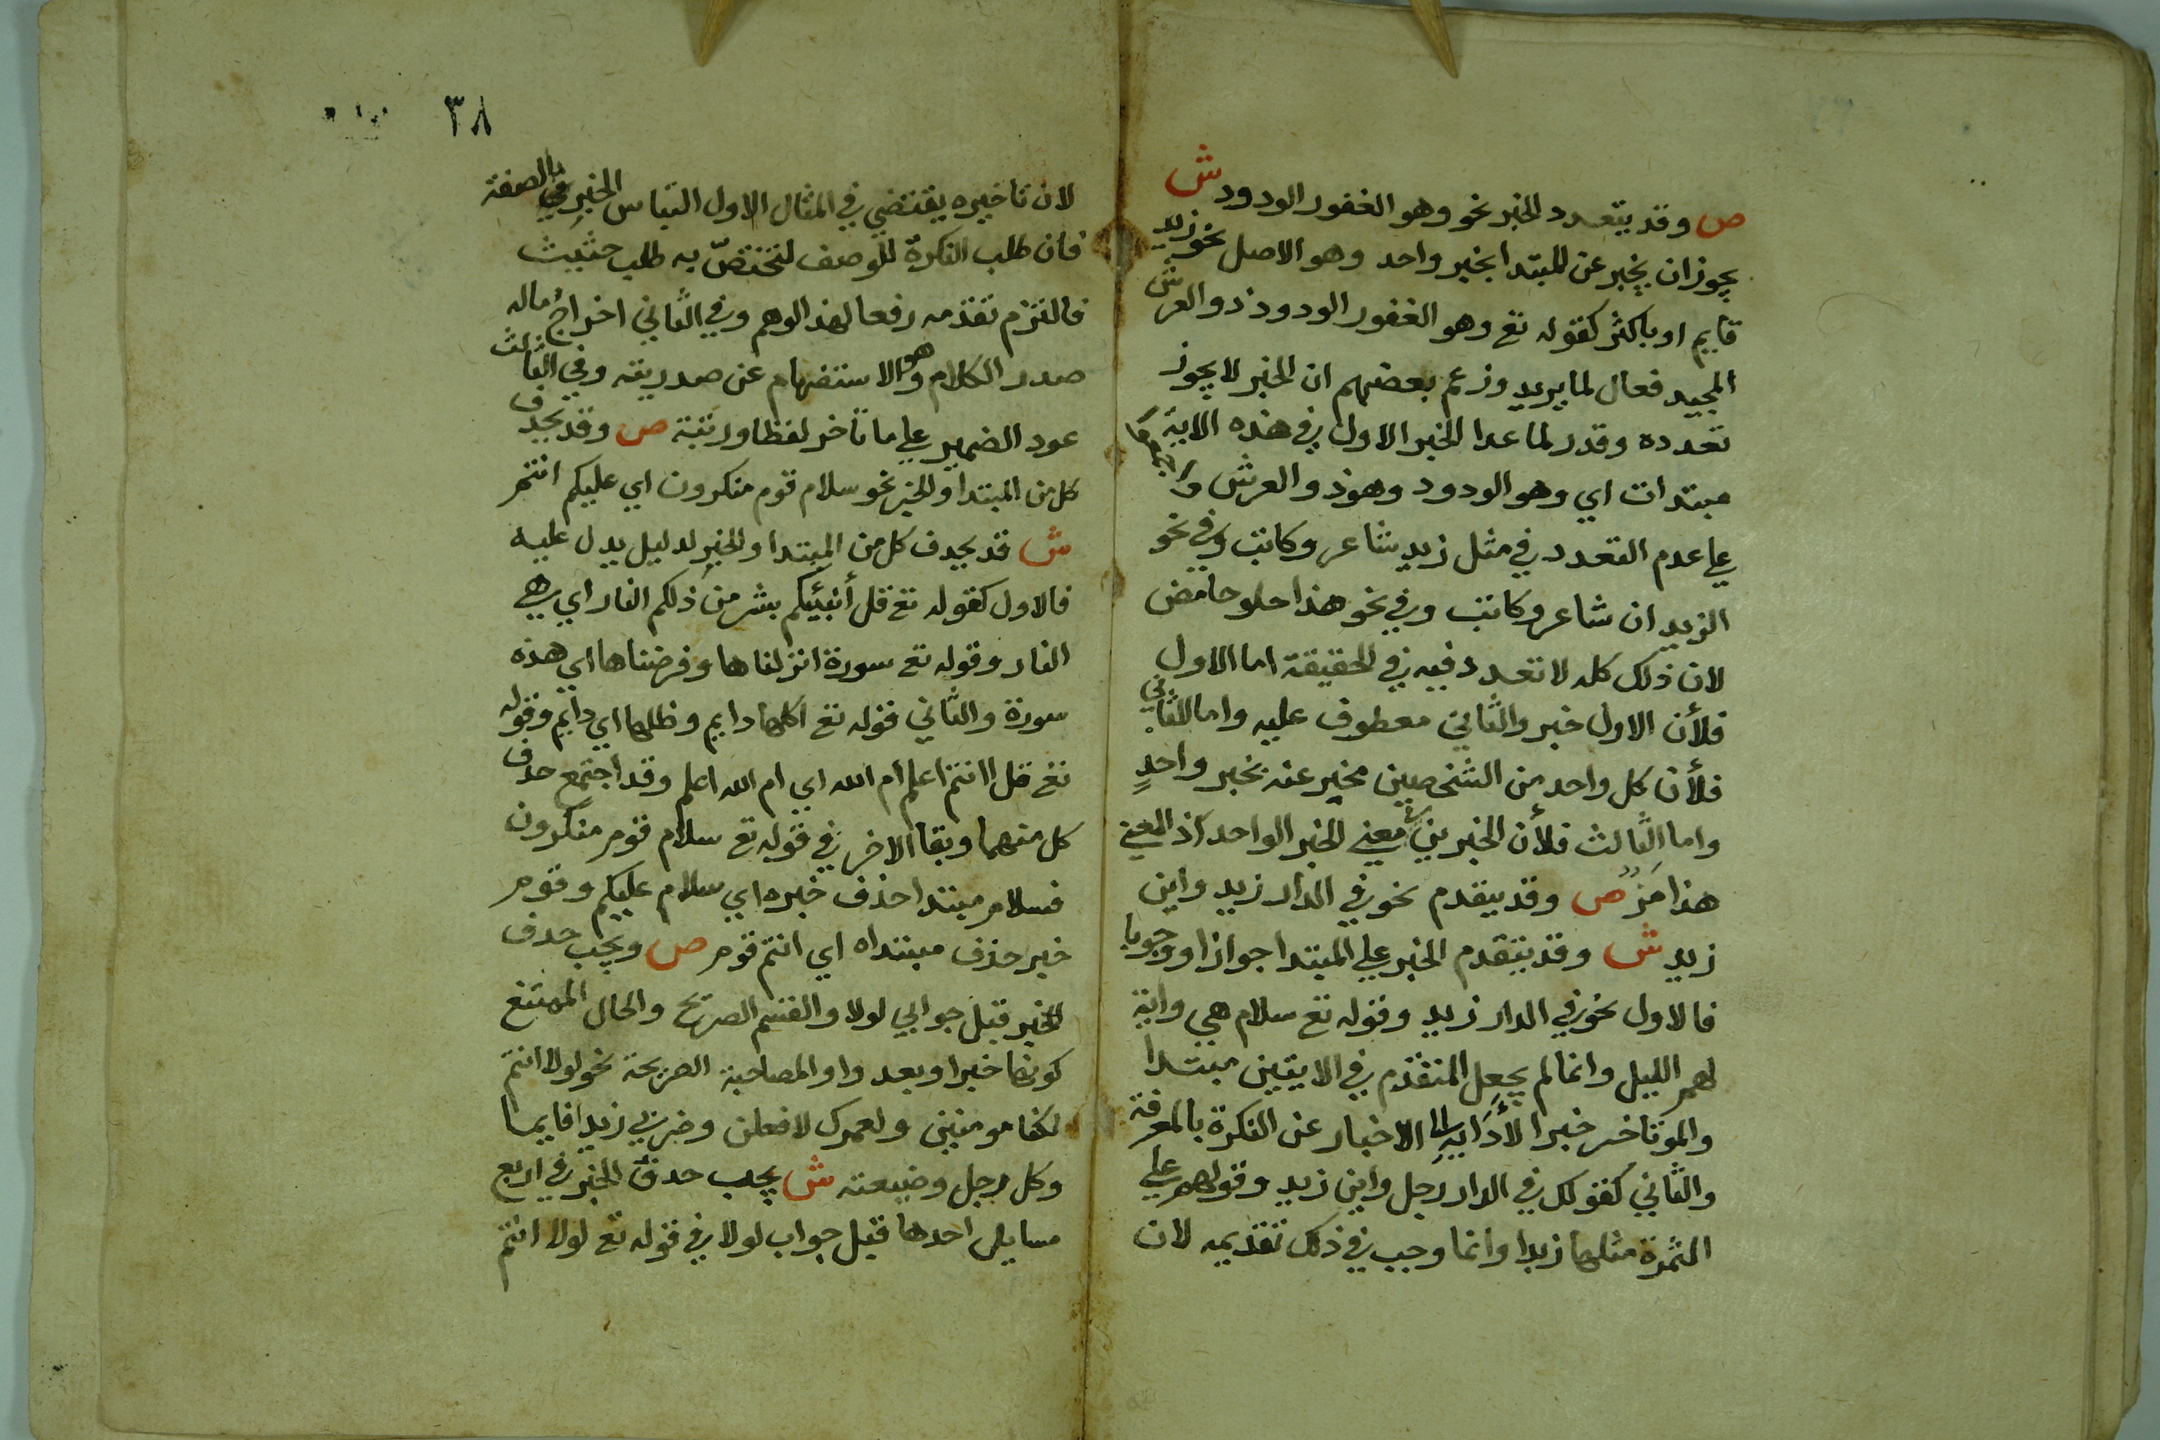 ص وقد يتعدد الخبر نحو وهو الغفور الودود ش
يجوز ان يخبر عن المبتدا بخبر واحد وهو الاصل نحو زيد
قايم او باكثر كقوله تع وهو الغفور الودود ذو العرش
المجيد فعال لما يريد وزعم بعضهم ان الخبر لا يجوز
تعدده وقدر لما عدا الخبر الاول في هذه الاية
مبتدات اي وهو الودود وهو ذو العرش واجمعوا
علي عدم التعدد في مثل زيد شاعر وكاتب وفي نحو
الزيدان شاعر وكاتب وفي نحو هذا حلو حامض
لان ذلك كله لا تعدد فيه في الحقيقة اما الاول
فلأن الاول خبر والثاني معطوف عليه واما الثاني
فلأن كل واحد من الشخصين مخبر عنه بخبر واحدٍ
واما الثالث فلأن الخبرين في معني الخبر الواحد اذ المعني
هذا مزّ ص وقد يتقدم نحو في الدار زيد واين
زيد ش وقد يتقدم الخبر علي المبتدا جوازا او وجوبا
فالاول نحو في الدار زيد وقوله تع سلام هي واية
لهم الليل وانما لم يجعل المتقدم في الايتين مبتدا
والموتاخر خبرا لأدايه الى الاخبار عن النكرة بالمعرفة
والثاني كقولك في الدار رجل واين زيد وقولهم علي
الثمرة مثلها زبدا وانما وجب في ذلك تقديمه لان
٣٨
لان تاخيره يقتضي في المثال الاول التباس الخبر بالصفة
فان طلب النكرة للوصف لتختصّ به طلب حثيث
فالتزم تقدمه رفعا لهذا الوهم وفي الثاني اخراج ماله
صدر الكلام وهو الاستفهام عن صدريته وفي الثالث
عود الضمير علي ما تأخر لفظا ورتبة ص وقد يحذف
كل من المبتدا والخبر نحو سلام قوم منكرون اي عليكم انتم
ش قد يحدف كل من المبتدا والخبر لدليل يدل عليه
فالاول كقوله تع قل أنبئكم بشر من ذلكم النار اي هي
النار وقوله تع سورة انزلناها وفرضناها اي هذه
سورة والثاني قوله تع اكلها دايم وظلها اي دايم وقوله
تع قل اانتم اعلم ام الله اي ام الله اعلم وقد اجتمع حذف
كل منهما وبقا الاخر في قوله تع سلام قوم منكرون
فسلام مبتدا حذف خبره اي سلام عليكم وقوم
خبر حذف مبتداه اي انتم قوم ص ويجب حدف
الخبر قبل جوابي لولا والقسم الصريح والحال الممتنع
كونها خبرا وبعد واو المصاحبة الصريحة نحو لولا انتم
لكنا مومنين ولعمرك لافعلن وضربي زيدا قايما
وكل رجل وضيعته ش يجب حدف الخبر في اربع
مسايل احدها قبل جواب لولا في قوله تع لولا انتم